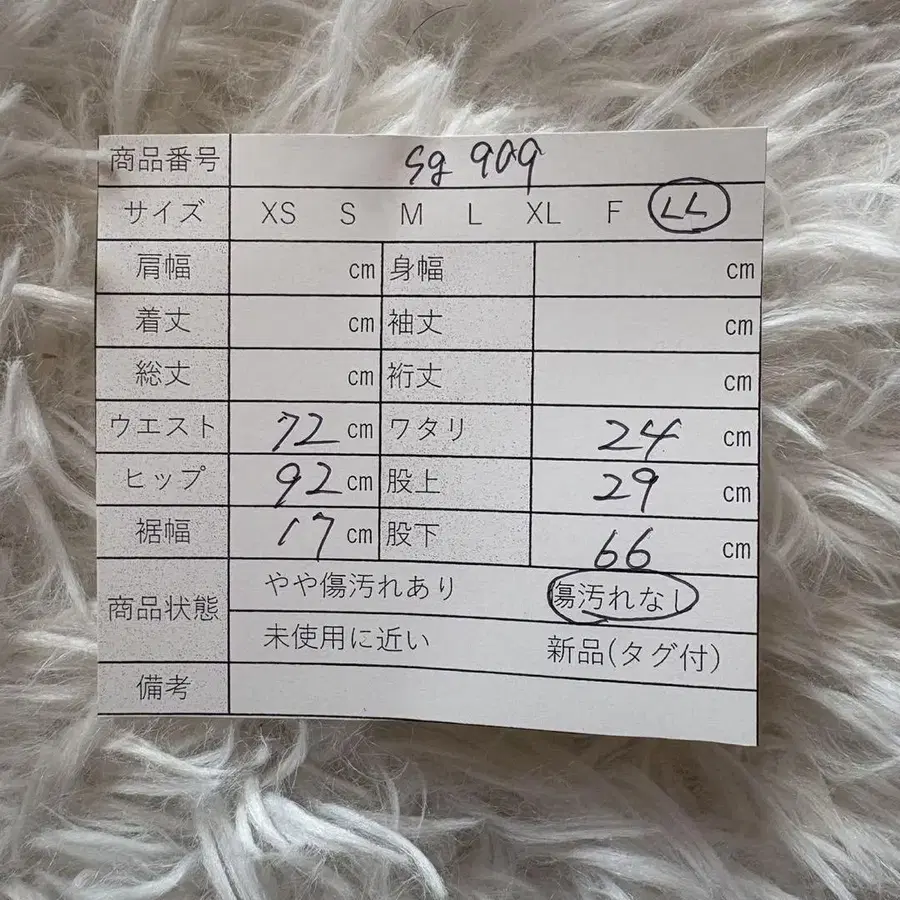 商品番号 sg 909
サイズ XS S M L XL F LL
肩幅 cm 身幅 cm
着丈 cm 袖丈 cm
総丈 cm 裄丈 cm
ウエスト 72 cm ワタリ 24 cm
ヒップ 92 cm 股上 29 cm
裾幅 17 cm 股下 66 cm
商品状態 やや傷汚れあり 傷汚れなし
未使用に近い 新品(タグ付)
備考